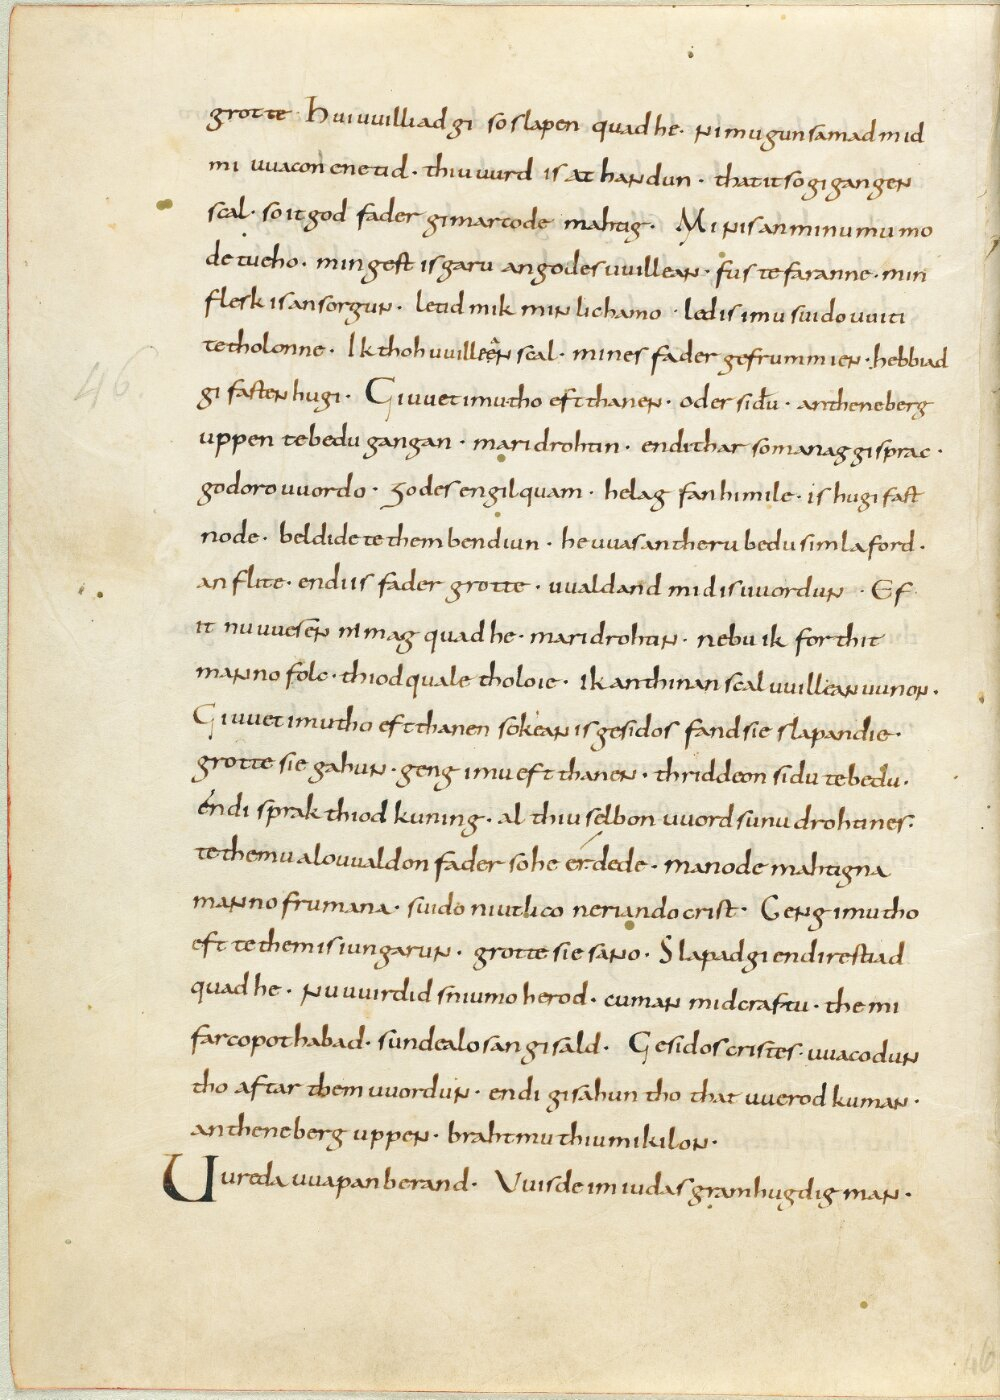 grotte. Huiuuilliad gi so slapen quad he. ni mugun samad mid
mi uuacon ene tid. thiu uurd is at handun. that it so gigangen
scal. so it god fader gimarcode mahtig. Mi nis an minumu mo
de tueho. min gest is garu an godes uuillean. fus te faranne. min
flesk is an sorgun. letid mik min lichamo. led is imu suido uuiti
te tholonne. Ik thoh uuilleân scal. mines fader gefrummien. hebbiad
gi fasten hugi. Giuuet imu tho eft thanen. oder siđu. an thene berg
uppen te bedu gangan. mari drohtin. endi thar so manag gisprac.
godoro uuordo. Godes engil quam. helag fan himile. is hugi fast
node. beldide te them bendiun. he uuas an theru bedu simla ford.
an flite. endi is fader grotte. uualdand mid is uuordun. Ef
it nu uuesen ni mag quad he. mari drohtin. nebu ik for thit
manno folc. thiodquale tholoie. Ik an thinan scal uuillean uunon.
Giuuet imu tho eft thanen sokean is gesidos fand sie slapandie.
grotte sie gahun. geng imu eft thanen. thriddeon sidu te bedu.
endi sprak thiod kuning. al thiu selbon uuord sunu drohtines.
te themu alouualdon fader so he er dede. manode mahtigna
manno frumana. suido niutlico neriando crist. Geng imu tho
eft te them is iungarun. grotte sie sano. Slapad gi endi restiad
quad he. nu uuirdid sniumo herod. cuman mid craftu. the mi
farcopot habad. sundea losan gisald. Gesidos cristes. uuacodun
tho aftar them uuordun. endi gisahun tho that uuerod kuman.
an thene berg uppen. brahtmu thiu mikilon.
Uureda uuapanberand. Uuisde im iudas gramhugdig man.
46
46